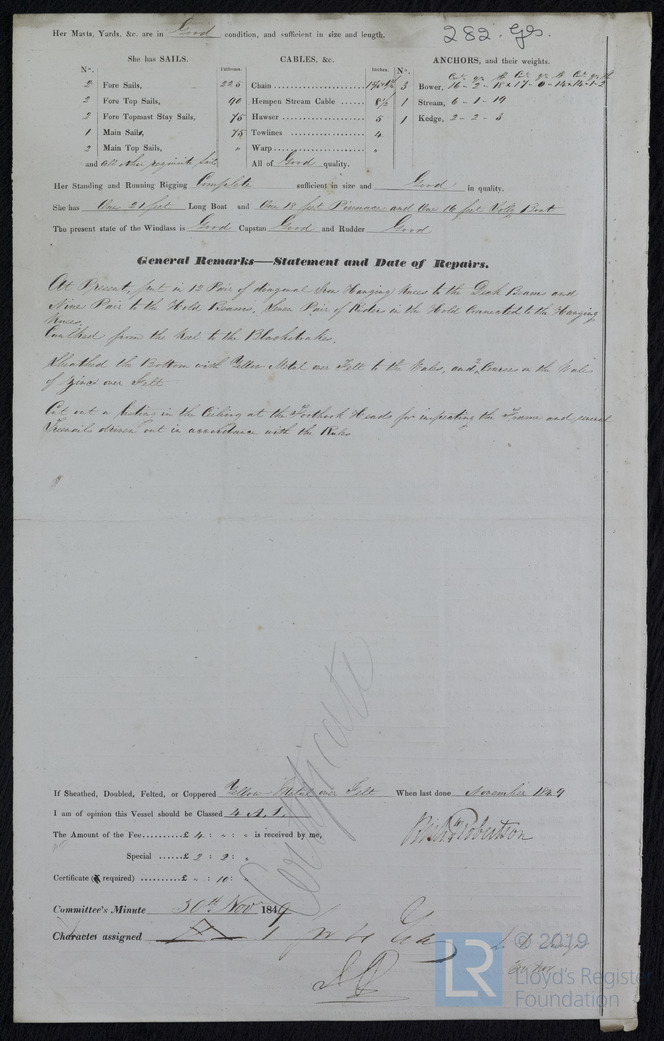 282 Gls.
Her Masts, Yards, &c. are in Good condition, and sufficient in size and length.
She has SAILS. CABLES, &c. ANCHORS, and their weights.
No. Fathoms. Inches. No.
2 Fore Sails, 225 Chain 3 Bower,
2 Fore Top Sails, 90 Hempen Stream Cable 8½ 1 Stream, 6 - 1 - 19
2 Fore Topmast Stay Sails, 75 Hawser 5 1 Kedge, 2 - 2 - 3
1 Main Sails, 75 Towlines 4
2 Main Top Sails, " Warp "
and all other requisite sails All of Good quality.
Her Standing and Running Rigging Complete sufficient in size and Good in quality.
She has One 21 feet Long Boat and One 18 feet Pinnace and One 16 feet Jolly Boat
The present state of the Windlass is Good Capstan Good and Rudder Good
General Remarks—Statement and Date of Repairs.
At Present, put in 12 Pair of diagonal Iron Hanging Knees to the Deck Beams and
Nine Pair to the Hold Beams, Seven Pair of Riders in the Hold Connected to the Hanging
Knees.
Caulked from the Keel to the Blackstrakes.
Sheathed the Bottom with Yellow Metal over Felt to the Wales, and 2 Courses on the Wales
of Zinc over Felt
Cut out a Listing in the Ceiling at the Foothook Heads for inspecting the Frame and several
Treenails driven out in accordance with the Rules
Certificate
If Sheathed, Doubled, Felted, or Coppered Yellow Metal over Felt When last done November 1849
I am of opinion this Vessel should be Classed 4 A. 1.
The Amount of the Fee £ 4 : " : " is received by me,
Robertson
Special £ 2 : 2 : "
Certificate (if required) £ " : 10 :
Committee's Minute 30th Nov 1849
Character assigned
© 2019
LR
Lloyd's Register
Foundation